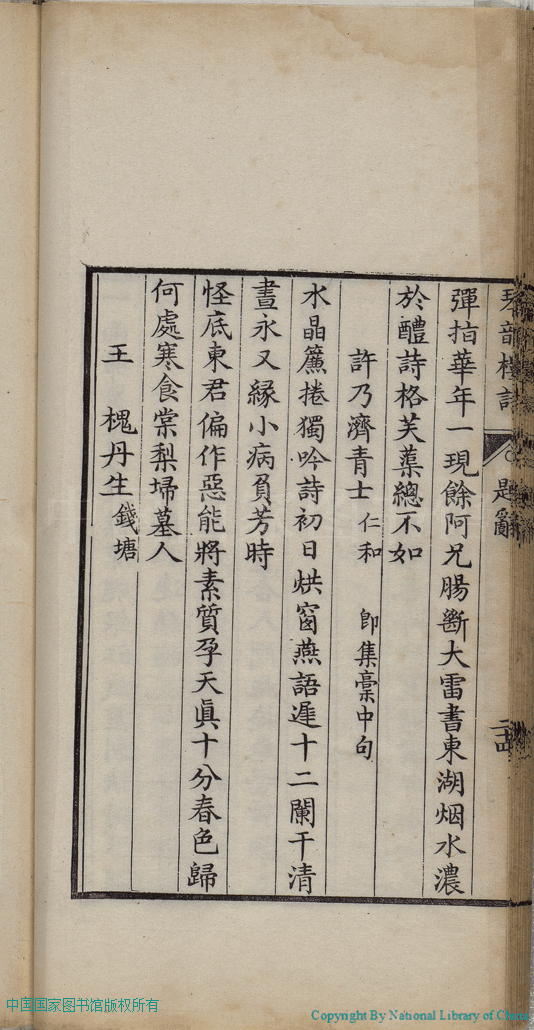 題辭
彈指華年一現餘阿兄腸斷大雷書東湖烟水濃
於醴詩格芙蕖總不如
許乃濟青士 仁和 卽集稾中句
水晶簾捲獨吟詩初日烘窗燕語遲十二闌干清
晝永又緣小病負芳時
怪底東君偏作惡能將素質孕天眞十分春色歸
何處寒食棠梨埽墓人
王 槐丹生 錢塘
中国国家图书馆版权所有
Copyright By National Library of China